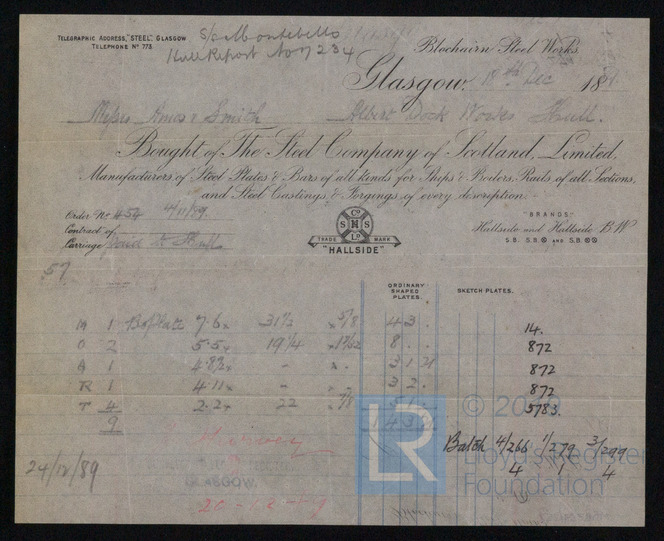 TELEGRAPHIC ADDRESS, "STEEL", GLASGOW
TELEPHONE Nº 773
S/S Montebello
Hull Report No 7234
Blochairn Steel Works
Glasgow, 18th Dec 188
Messrs Amos & Smith Albert Dock Works Hull.
Bought of The Steel Company of Scotland, Limited,
Manufacturers of Steel Plates & Bars of all kinds for Ships & Boilers, Rails, of all Sections,
and Steel Castings, & Forgings, of every description.
Order No 454 4/11/89.
Contract of
Carriage Paid to Hull
Cº
S H S
LD
TRADE MARK
"HALLSIDE"
"BRANDS"
Hallside and Hallside B.W
S.B. S.B AND S.B
57
ORDINARY SHAPED PLATES.
SKETCH PLATES.
M 1 BoPlate 7.6 x 31½ x 5/8 4 3 14.
O 2 5.5 x 19¼ 8 872
A 1 872
R 1 4.11 x 3 2 872
T 4 2.2 22 5783
9
Batch 4/266 1/279 3/299
4 1 4
24/12/89
GLASGOW.
20-12-89
LR
© 20
Lloyd's Register
Foundation